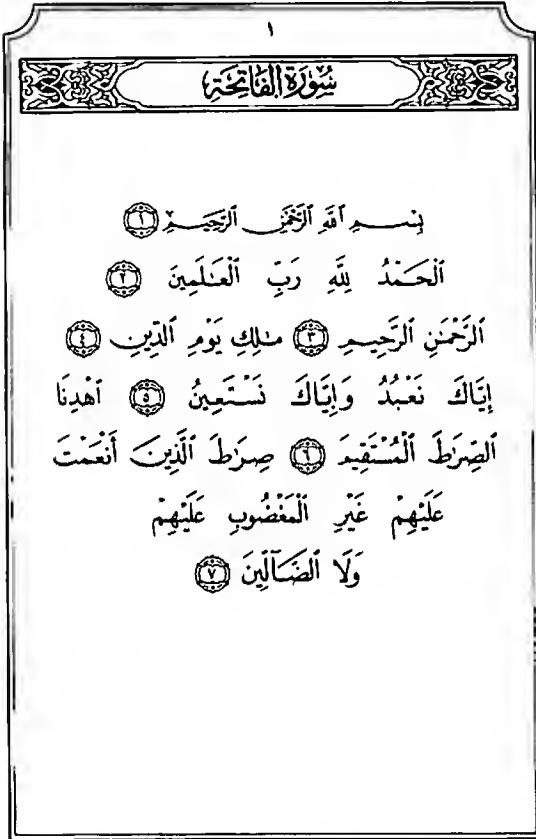 ١
سُورَةُ الفَاتِحَةِ
بِسْمِ ٱللَّهِ ٱلرَّحْمَٰنِ ٱلرَّحِيمِ ١
ٱلْحَمْدُ لِلَّهِ رَبِّ ٱلْعَٰلَمِينَ ٢
ٱلرَّحْمَٰنِ ٱلرَّحِيمِ ٣ مَٰلِكِ يَوْمِ ٱلدِّينِ ٤
إِيَّاكَ نَعْبُدُ وَإِيَّاكَ نَسْتَعِينُ ٥ ٱهْدِنَا
ٱلصِّرَٰطَ ٱلْمُسْتَقِيمَ ٦ صِرَٰطَ ٱلَّذِينَ أَنْعَمْتَ
عَلَيْهِمْ غَيْرِ ٱلْمَغْضُوبِ عَلَيْهِمْ
وَلَا ٱلضَّآلِّينَ ٧